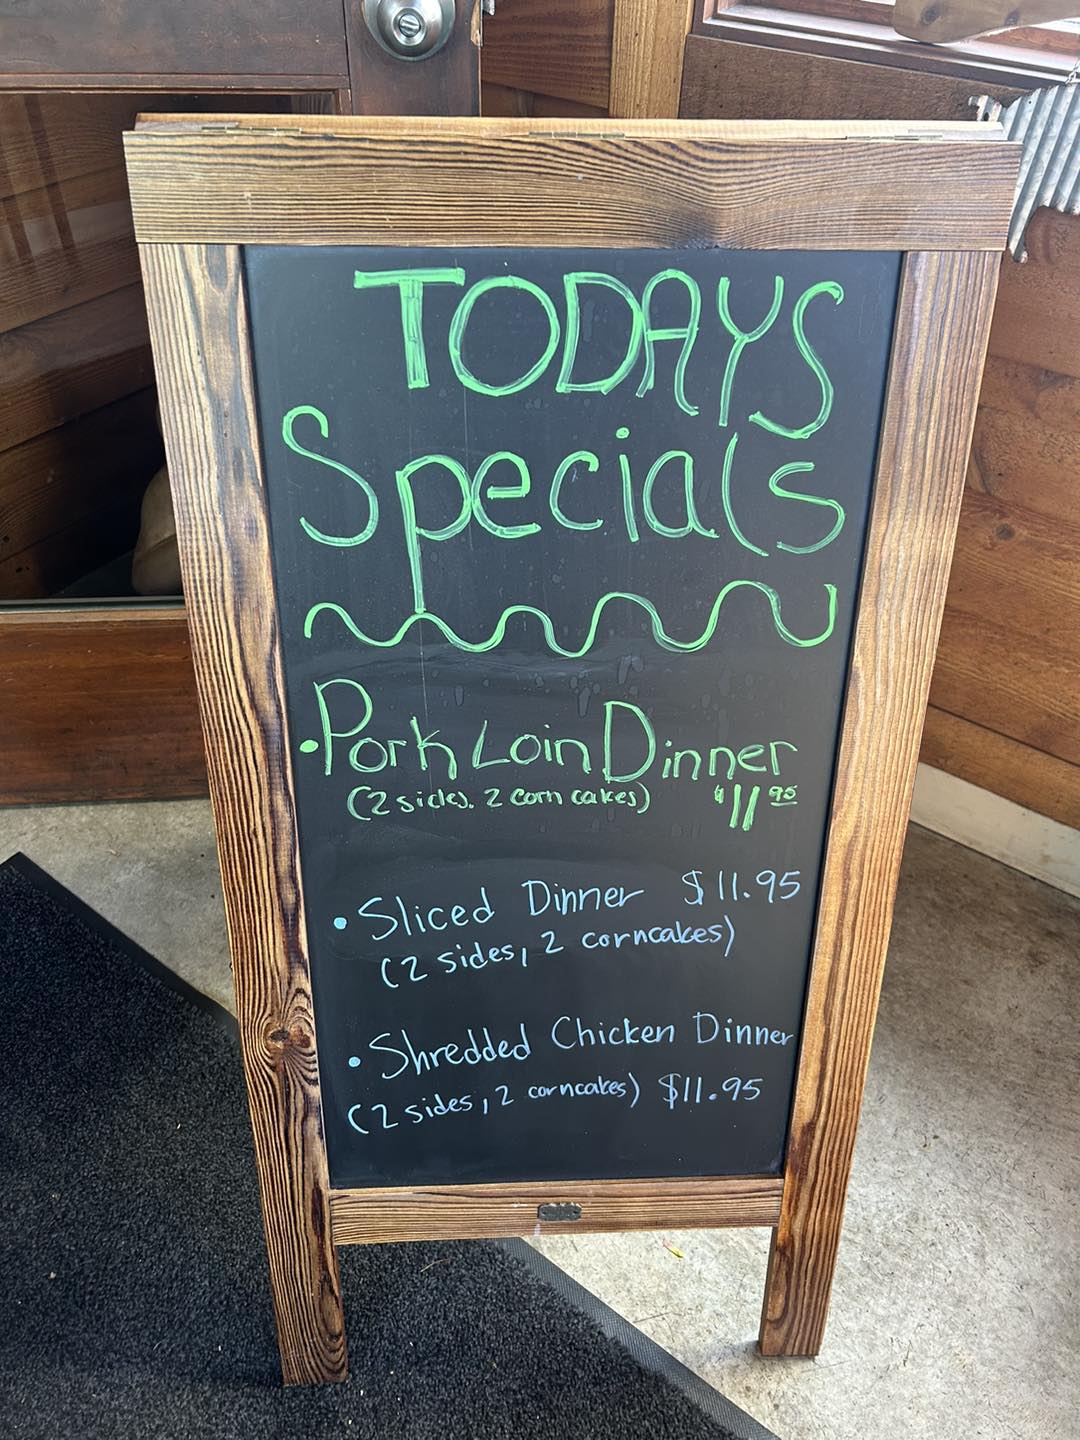 TODAYS
Specials
• Pork Loin Dinner
(2 sides. 2 corn cakes) $11 95
• Sliced Dinner $11.95
(2 sides, 2 corncakes)
• Shredded Chicken Dinner
(2 sides, 2 corncakes) $11.95